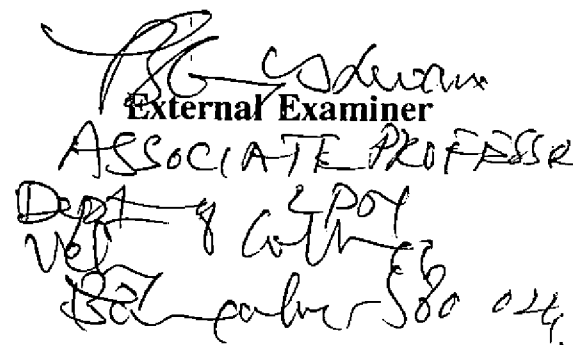 External Examiner
ASSOCIATE PROFESSR
Dept of
Vet College
Bangalore-560 024.